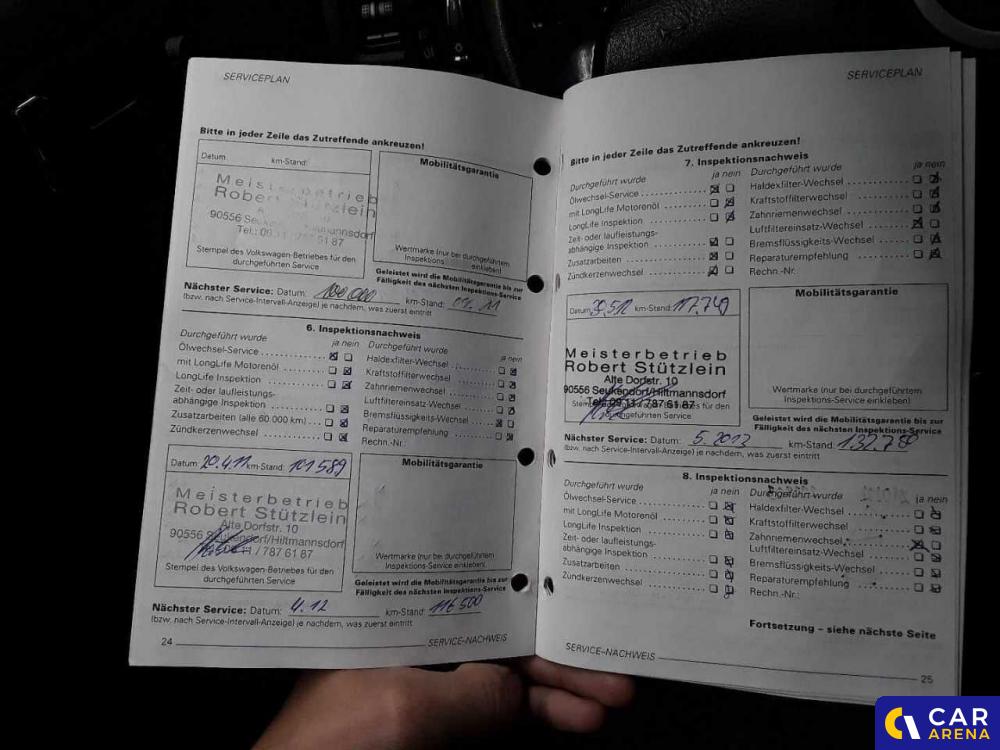 SERVICEPLAN
Bitte in jeder Zeile das Zutreffende ankreuzen!
Datum: km-Stand:
Meisterbetrieb
Robert Stützlein
90556
Tel.:
Stempel des Volkswagen-Betriebes für den
durchgeführten Service
Mobilitätsgarantie
Wertmarke (nur bei durchgeführtem
Inspektions einkleben!
Geleistet wird die Mobilitätsgarantie bis zur
Fälligkeit des nächsten Inspektions-Service
Nächster Service: Datum: 100 000 km-Stand: 04. 11
(bzw. nach Service-Intervall-Anzeige) je nachdem, was zuerst eintritt
6. Inspektionsnachweis
Durchgeführt wurde ja nein
Ölwechsel-Service
mit LongLife Motorenöl
LongLife Inspektion
Zeit- oder laufleistungs-
abhängige Inspektion
Zusatzarbeiten (alle 60 000 km)
Zündkerzenwechsel
Durchgeführt wurde ja nein
Haldexfilter-Wechsel
Kraftstoffilterwechsel
Zahnriemenwechsel
Luftfiltereinsatz-Wechsel
Bremsflüssigkeits-Wechsel
Reparaturempfehlung
Rechn.-Nr.:
Datum: 20.4.11 km-Stand: 101589
Meisterbetrieb
Robert Stützlein
Alte Dorfstr. 10
90556 Seukendorf/Hiltmannsdorf
/ 787 61 87
Stempel des Volkswagen-Betriebes für den
durchgeführten Service
Mobilitätsgarantie
Wertmarke (nur bei durchgeführtem
Inspektions-Service einkleben!)
Geleistet wird die Mobilitätsgarantie bis zur
Fälligkeit des nächsten Inspektions-Service
Nächster Service: Datum: 4.12 km-Stand: 116 500
(bzw. nach Service-Intervall-Anzeige) je nachdem, was zuerst eintritt
24 SERVICE-NACHWEIS
SERVICEPLAN
Bitte in jeder Zeile das Zutreffende ankreuzen!
7. Inspektionsnachweis
Durchgeführt wurde ja nein
Ölwechsel-Service
mit LongLife Motorenöl
LongLife Inspektion
Zeit- oder laufleistungs-
abhängige Inspektion
Zusatzarbeiten
Zündkerzenwechsel
Durchgeführt wurde ja nein
Haldexfilter-Wechsel
Kraftstoffilterwechsel
Zahnriemenwechsel
Luftfiltereinsatz-Wechsel
Bremsflüssigkeits-Wechsel
Reparaturempfehlung
Rechn.-Nr.
Datum: 30.5.12 km-Stand: 117.749
Meisterbetrieb
Robert Stützlein
Alte Dorfstr. 10
90556 Seukendorf/Hiltmannsdorf
Tel.: 09 11 / 787 61 87
durchgeführten Service
Mobilitätsgarantie
Wertmarke (nur bei durchgeführtem
Inspektions-Service einkleben!)
Geleistet wird die Mobilitätsgarantie bis zur
Fälligkeit des nächsten Inspektions-Service
Nächster Service: Datum: 5.2013 km-Stand: 132.780
(bzw. nach Service-Intervall-Anzeige) je nachdem, was zuerst eintritt
8. Inspektionsnachweis
Durchgeführt wurde ja nein
Ölwechsel-Service
mit LongLife Motorenöl
LongLife Inspektion
Zeit- oder laufleistungs-
abhängige Inspektion
Zusatzarbeiten
Zündkerzenwechsel
Durchgeführt wurde ja nein
Haldexfilter-Wechsel
Kraftstoffilterwechsel
Zahnriemenwechsel
Luftfiltereinsatz-Wechsel
Bremsflüssigkeits-Wechsel
Reparaturempfehlung
Rechn.-Nr.:
Fortsetzung – siehe nächste Seite
SERVICE-NACHWEIS 25
CAR
ARENA